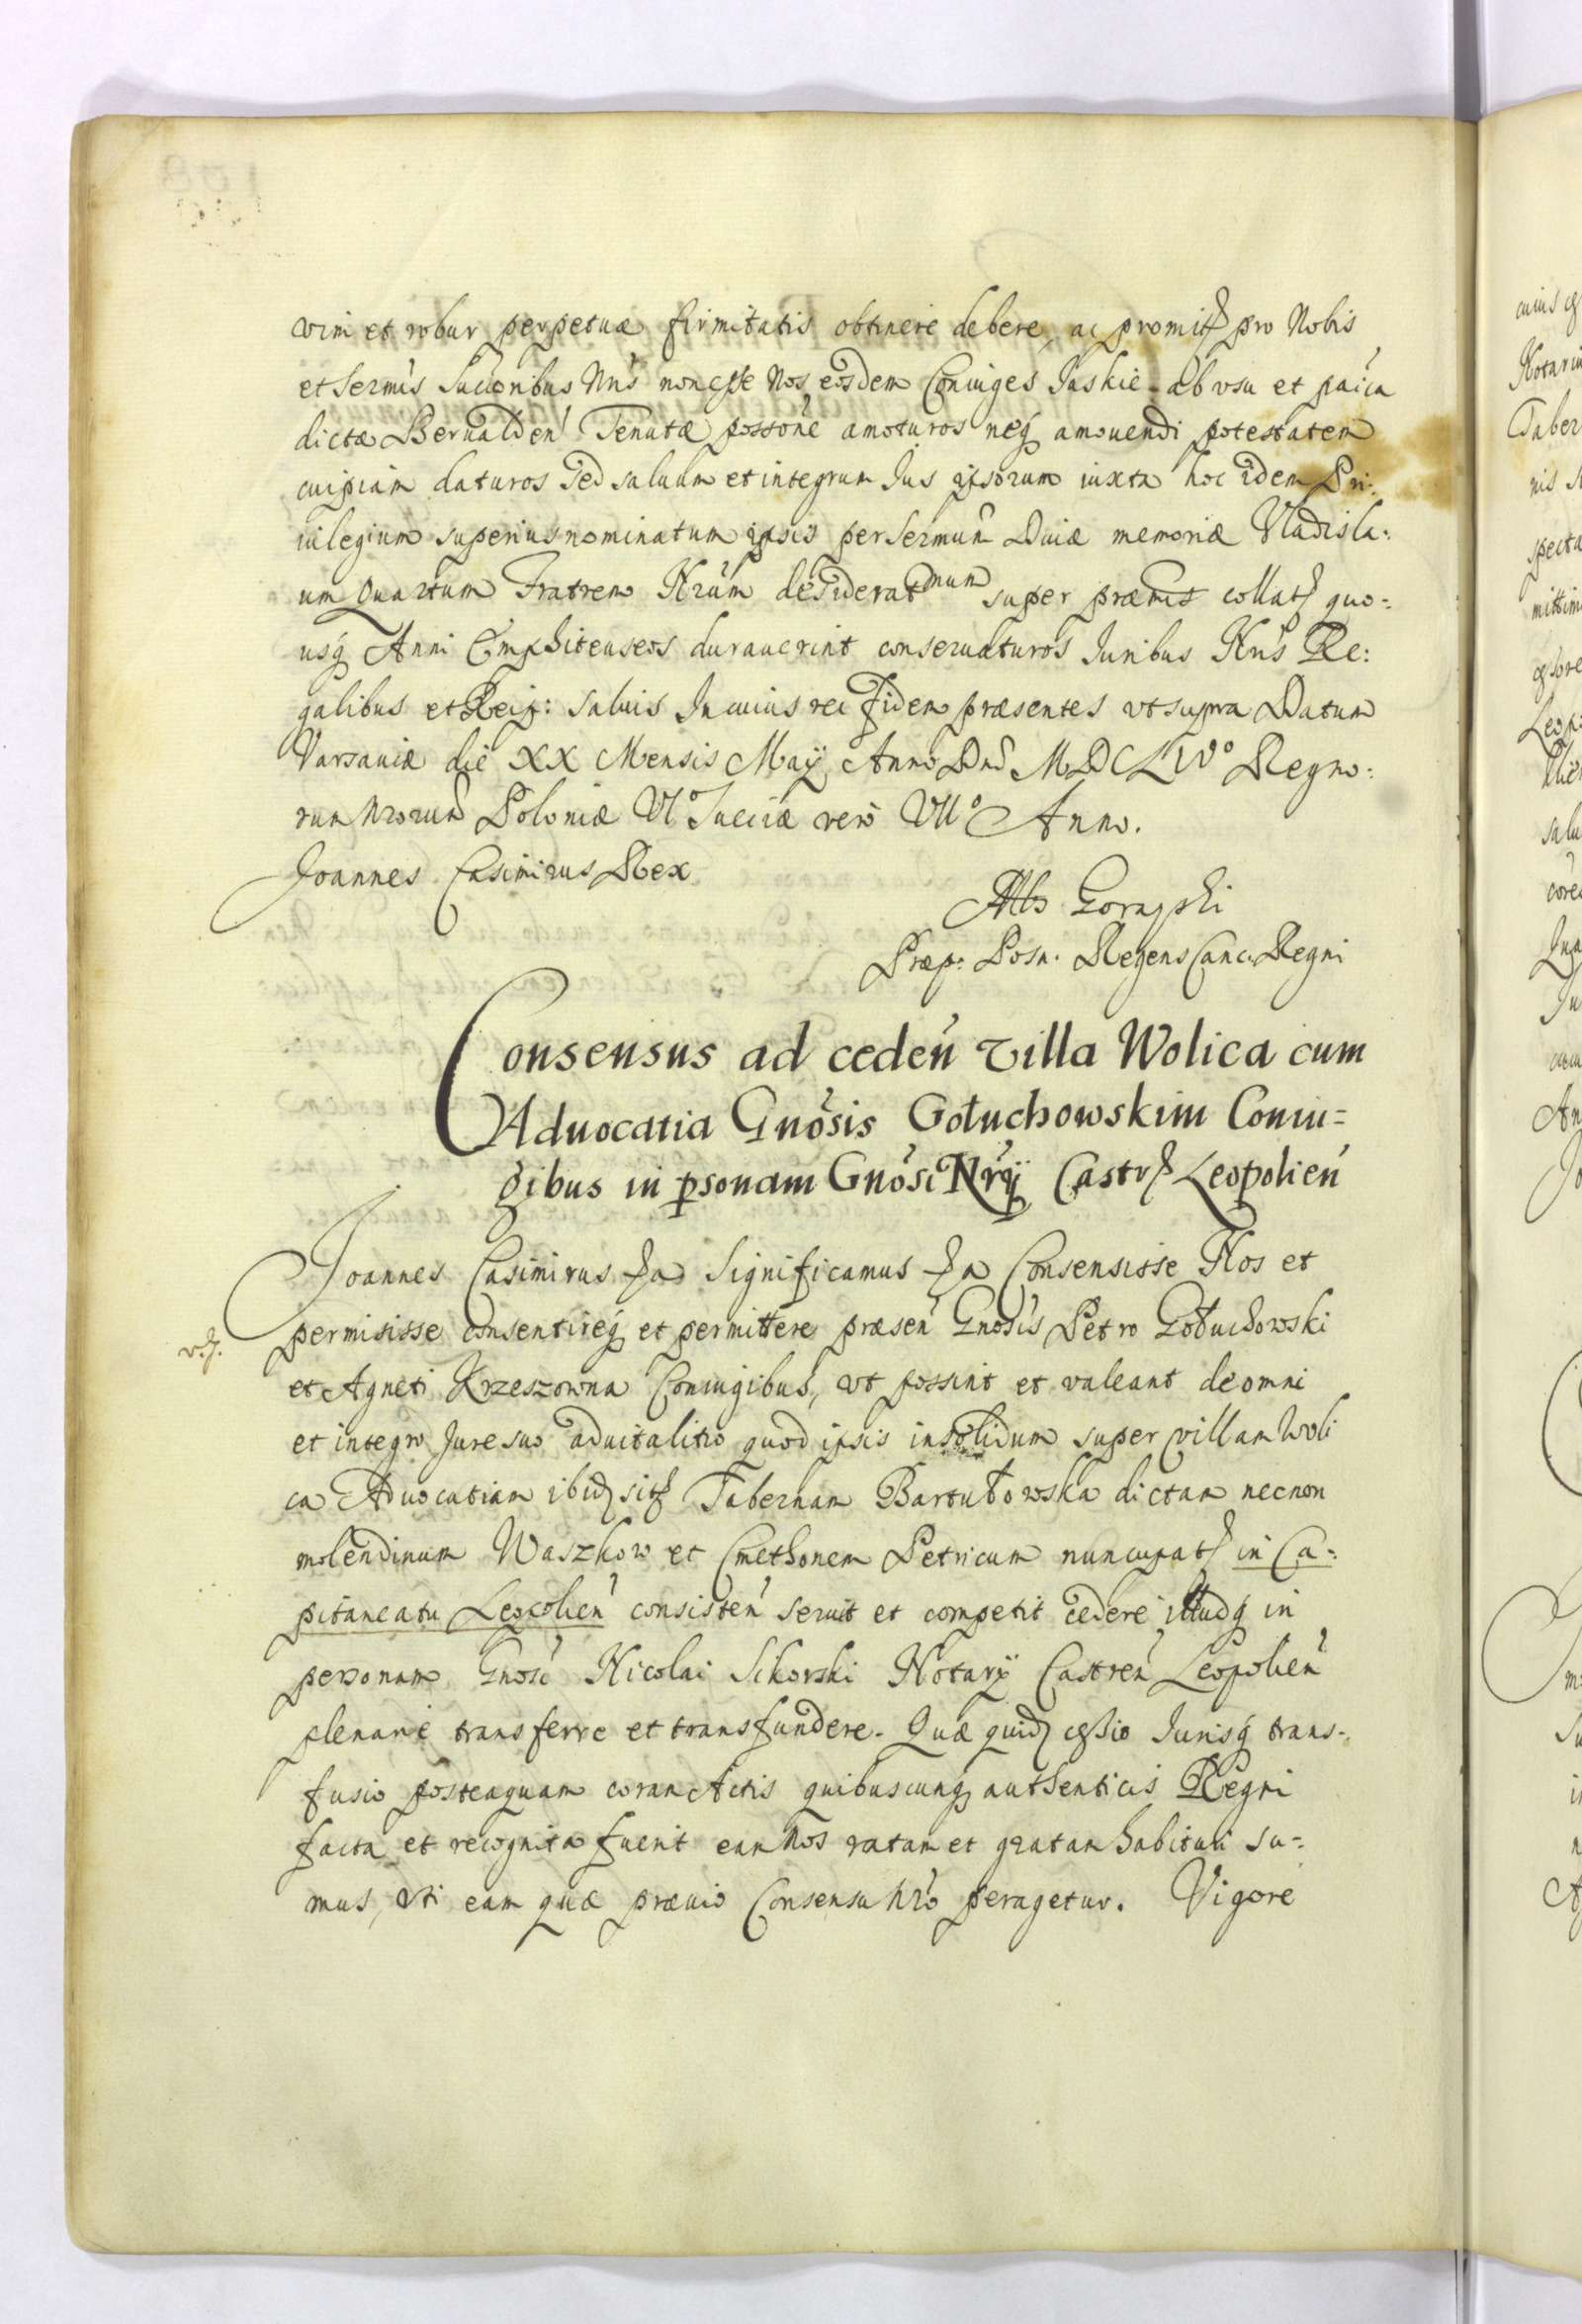 vim et robur perpetuæ firmitatis obtinere debere, ac promitt pro Nobis
et Sermis Succoribus Nris non esse Nos eosdem Coniuges Jaskie ab usu et pacica
dictæ Berualden Tenutæ possone amoturos neq amouendi potestatem
cuipiam daturos sed saluum et integrum Jus ipsorum iuxta hoc idem Pri:
iuilegium superius nominatum ipsis per Sermum Diuæ memoriæ Vladisla:
um Quartum Fratrem Nrum desideratmum super præmis collat quo=
usq Anni Emphiteuseos durauerint conseruaturos Juribus Nris Re:
galibus et Reip: saluis In cuius rei fidem præsentes ut supra Datum
Varsauiæ die XX Mensis Maij Anno Dni MDCLIVo Regno:
rum Nrorum Poloniæ VIo Sueciæ vero VIIo Anno.
Joannes Casimirus Rex
Alb Gorayski
Præp: Posn. Regens Canc. Regni
Consensus ad ceden Villa Wolica cum
Aduocatia Gnosis Gołuchowskim Coniu=
gibus in psonam Gnosi Nrij Castr Leopolien
Joannes Casimirus &a Significamus &a Consensisse Nos et
permisisse consentireq et permittere præsen Gnosis Petro Gołuchowski
et Agneti Krzeszowna Coniugibus, ut possint et valeant de omni
et integro Jure suo aduitalitio quod ipsis insolidum super villam Woli
ca Aduocatiam ibid sit Tabernam Bartułowska dictam necnon
molendinum Waszkow et Cmethonem Petricum nuncupat in Ca=
pitaneatu Leopolien consisten seruit et competit cedere illudq in
personam Gnosi Nicolai Sikorski Notarij Castren Leopolien
plenarie transferre et transfundere. Quæ quid cessio Jurisq trans=
fusio posteaquam coram Actis quibuscunq authenticis Regni
facta et recognita fuerit eam Nos ratam et gratam habituri su=
mus, Uti eam quæ præuio Consensu Nro peragetur. Vigore